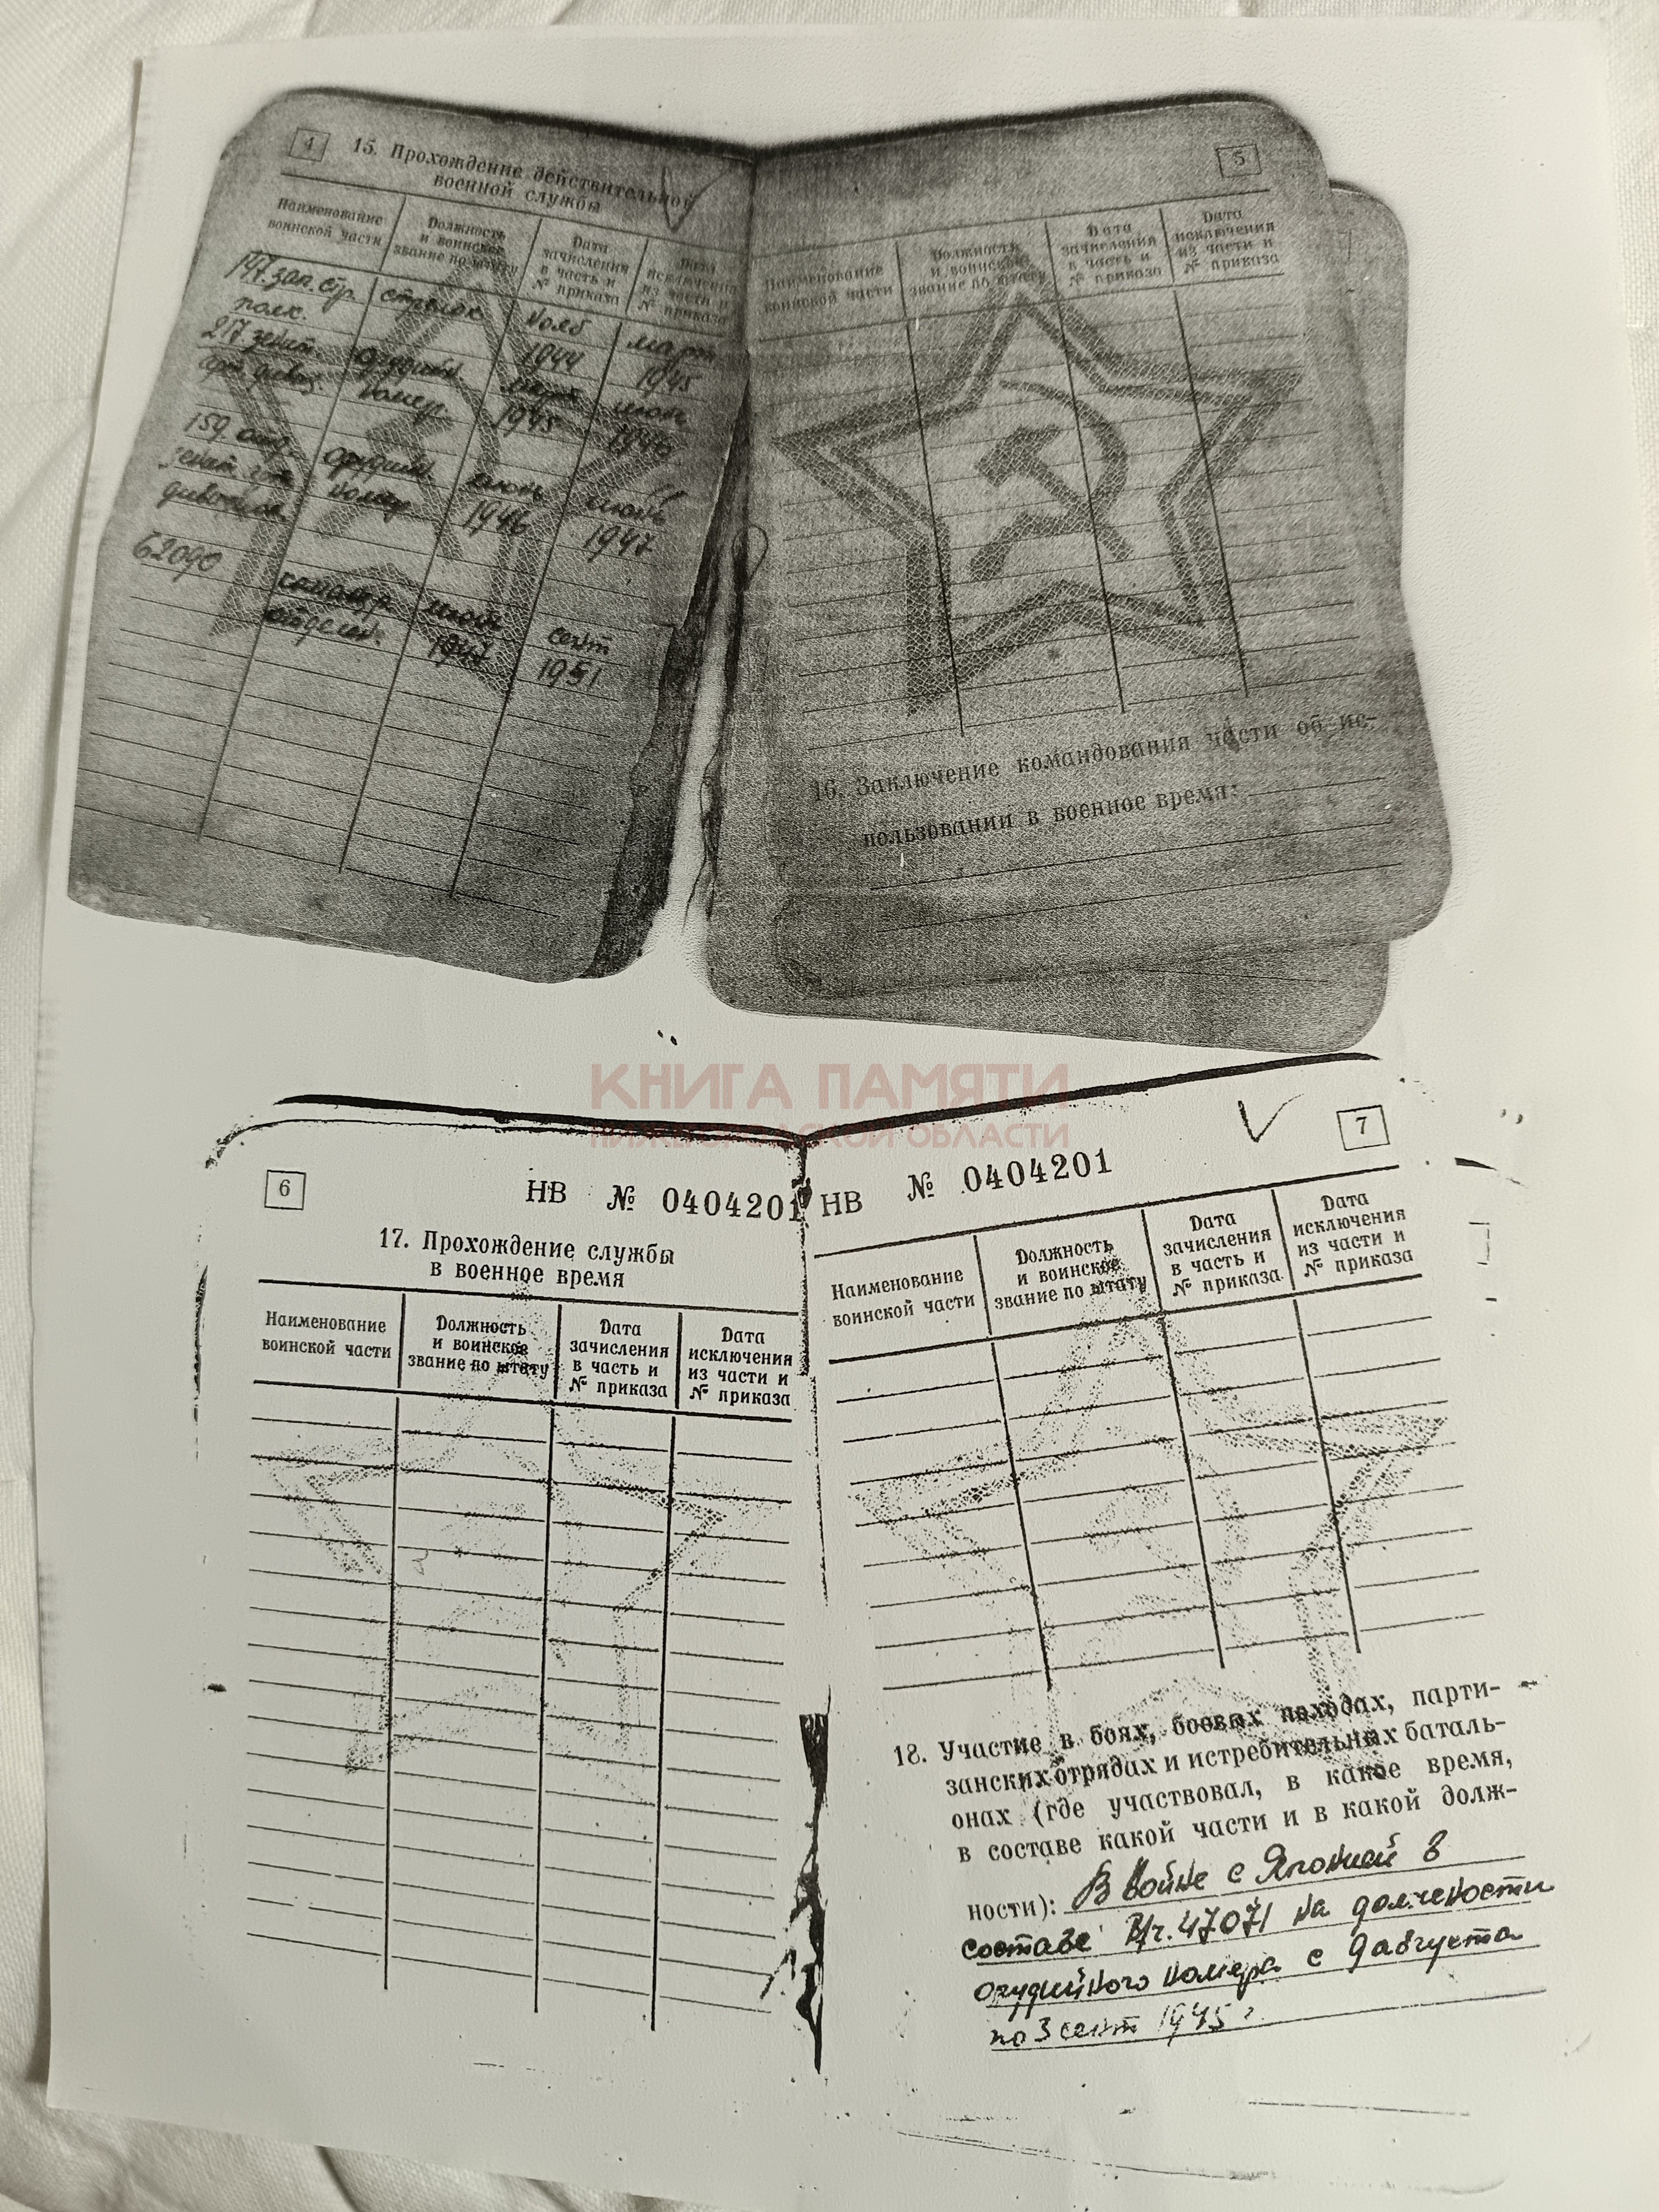 4
15. Прохождение действительной
военной службы
Наименование
воинской части
Должность
и воинское
звание по штату
Дата
зачисления
в часть и
№ приказа
Дата
исключения
из части и
№ приказа
147 зап. стр.
полк.
стрелок
нояб
1944
март
1945
217 зенит.
арт. дивиз.
орудийн
номер.
март
1945
июль
1946
159 отд.
зенит. арт.
дивизион
орудийн
номер
июль
1946
июль
1947
62090
командр.
отделен.
июль
1947
сент
1951
5
Наименование
воинской части
Должность
и воинское
звание по штату
Дата
зачисления
в часть и
№ приказа
Дата
исключения
из части и
№ приказа
16. Заключение командования части об ис-
пользовании в военное время:
КНИГА ПАМЯТИ
НИЖЕГОРОДСКОЙ ОБЛАСТИ
6
НВ № 0404201
17. Прохождение службы
в военное время
Наименование
воинской части
Должность
и воинское
звание по штату
Дата
зачисления
в часть и
№ приказа
Дата
исключения
из части и
№ приказа
7
НВ № 0404201
Наименование
воинской части
Должность
и воинское
звание по штату
Дата
зачисления
в часть и
№ приказа
Дата
исключения
из части и
№ приказа
18. Участие в боях, боевых походах, парти-
занских отрядах и истребительных баталь-
онах (где участвовал, в какое время,
в составе какой части и в какой долж-
ности): В войне с Японией в
составе В/ч. 47071 на должности
орудийного номера с 9 августа
по 3 сент 1945 г.